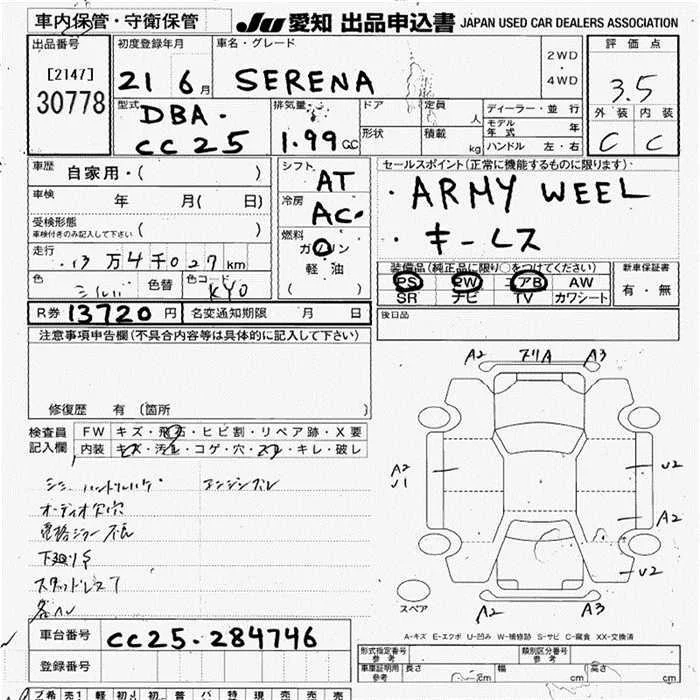 車内保管・守衛保管 JU 愛知 出品申込書 JAPAN USED CAR DEALERS ASSOCIATION
出品番号 初度登録年月 車名・グレード 2WD・4WD 評価点
[2147] 30778
21 6月 SERENA 3.5
型式 DBA・CC25
排気量 1.99 CC
ドア 定員 人
形状 積載 kg
ディーラー・並行
モデル年式 年
ハンドル 左・右
外装 内装
C C
車歴 自家用・( )
車検 年 月( 日)
受検形態 ( )
車検付きのみ記入して下さい
走行 13万4千027km
色 シルバ 色替 色コード KY0
シフト AT
冷房 AC
燃料 ガソリン
軽油
( )
セールスポイント(正常に機能するものに限ります)
・ARMY WEEL
・キーレス
装備品(純正品に限り○をつけてください) 新車保証書
PS PW エアB AW 有・無
SR ナビ TV カワシート
R券 13720円 名変通知期限 月 日
後日品
注意事項申告欄(不具合内容等は具体的に記入して下さい)
修復歴 有 (箇所 )
検査員記入欄 FW キズ・飛石・ヒビ割・リペア跡・X要
内装 キズ・汚レ・コゲ・穴・スレ・キレ・破レ
オーディオ欠穴
下廻りS
スタッドレス
A2 A3
A2 U1
U2
A2
U2
A2 A3
スペア
A-キズ E-エクボ U-凹み W-補修跡 S-サビ C-腐食 XX-交換済
車台番号 CC25-284746
登録番号
形式指定番号 参考 類別区分番号 参考
車庫証明用 参考 長さ cm 幅 cm 高さ cm